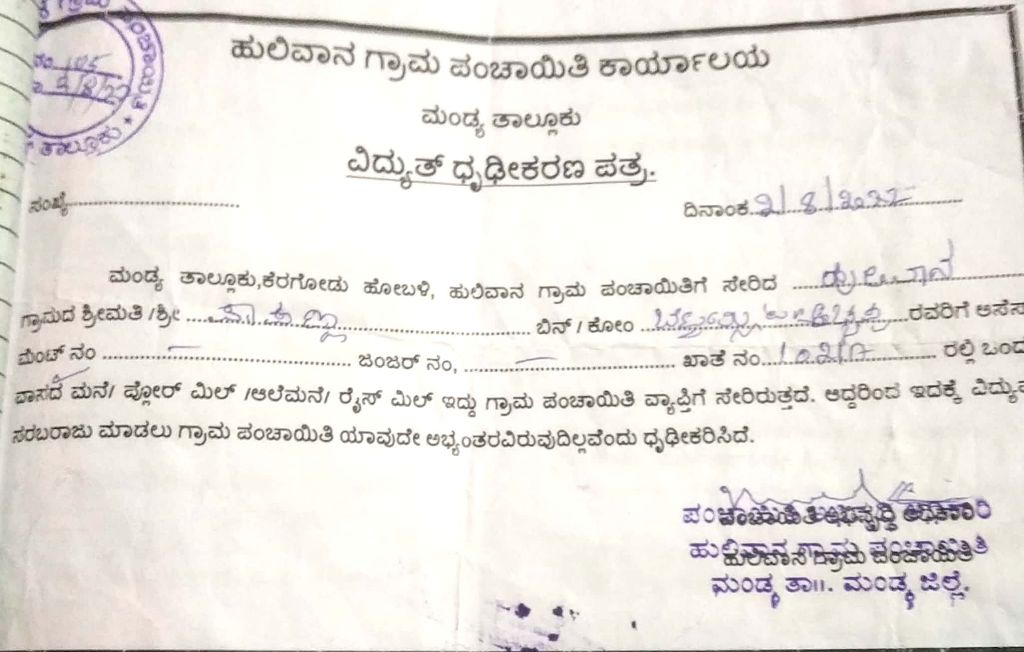 ನಂ. 105
ದಿ. 2/8/22
ತಾಲ್ಲೂಕು
ಹುಲಿವಾನ ಗ್ರಾಮ ಪಂಚಾಯಿತಿ ಕಾರ್ಯಾಲಯ
ಮಂಡ್ಯ ತಾಲ್ಲೂಕು
ವಿದ್ಯುತ್ ಧೃಢೀಕರಣ ಪತ್ರ.
ಸಂಖ್ಯೆ.................................... ದಿನಾಂಕ 2/8/2022
ಮಂಡ್ಯ ತಾಲ್ಲೂಕು,ಕೆರಗೋಡು ಹೋಬಳಿ, ಹುಲಿವಾನ ಗ್ರಾಮ ಪಂಚಾಯಿತಿಗೆ ಸೇರಿದ ಹುಲಿವಾನ
ಗ್ರಾಮದ ಶ್ರೀಮತಿ /ಶ್ರೀ ಬಿನ್ / ಕೋಂ ರವರಿಗೆ ಅಸೆಸ
ಮೆಂಟ್ ನಂ ಜಂಜರ್ ನಂ, ಖಾತೆ ನಂ. ರಲ್ಲಿ ಒಂದ
ವಾಸದ ಮನೆ/ ಪ್ಲೋರ್ ಮಿಲ್ /ಆಲೆಮನೆ/ ರೈಸ್ ಮಿಲ್ ಇದ್ದು ಗ್ರಾಮ ಪಂಚಾಯಿತಿ ವ್ಯಾಪ್ತಿಗೆ ಸೇರಿರುತ್ತದೆ. ಆದ್ದರಿಂದ ಇದಕ್ಕೆ ವಿದ್ಯುತ
ಸರಬರಾಜು ಮಾಡಲು ಗ್ರಾಮ ಪಂಚಾಯಿತಿ ಯಾವುದೇ ಅಭ್ಯಂತರವಿರುವುದಿಲ್ಲವೆಂದು ಧೃಢೀಕರಿಸಿದೆ.
ಪಂಚಾಯಿತಿ ಅಭಿವೃದ್ಧಿ ಅಧಿಕಾರಿ
ಹುಲಿವಾನ ಗ್ರಾಮ ಪಂಚಾಯಿತಿ
ಮಂಡ್ಯ ತಾ॥. ಮಂಡ್ಯ ಜಿಲ್ಲೆ.